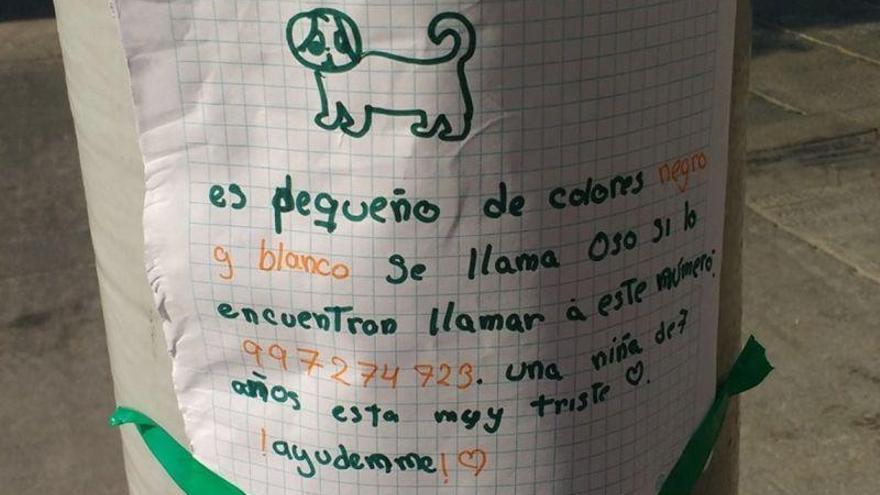 es pequeño de colores negro
y blanco se llama Oso si lo
encuentran llamar a este número:
997274723. una niña de 7
años esta muy triste ♡.
¡ayudemme! ♡